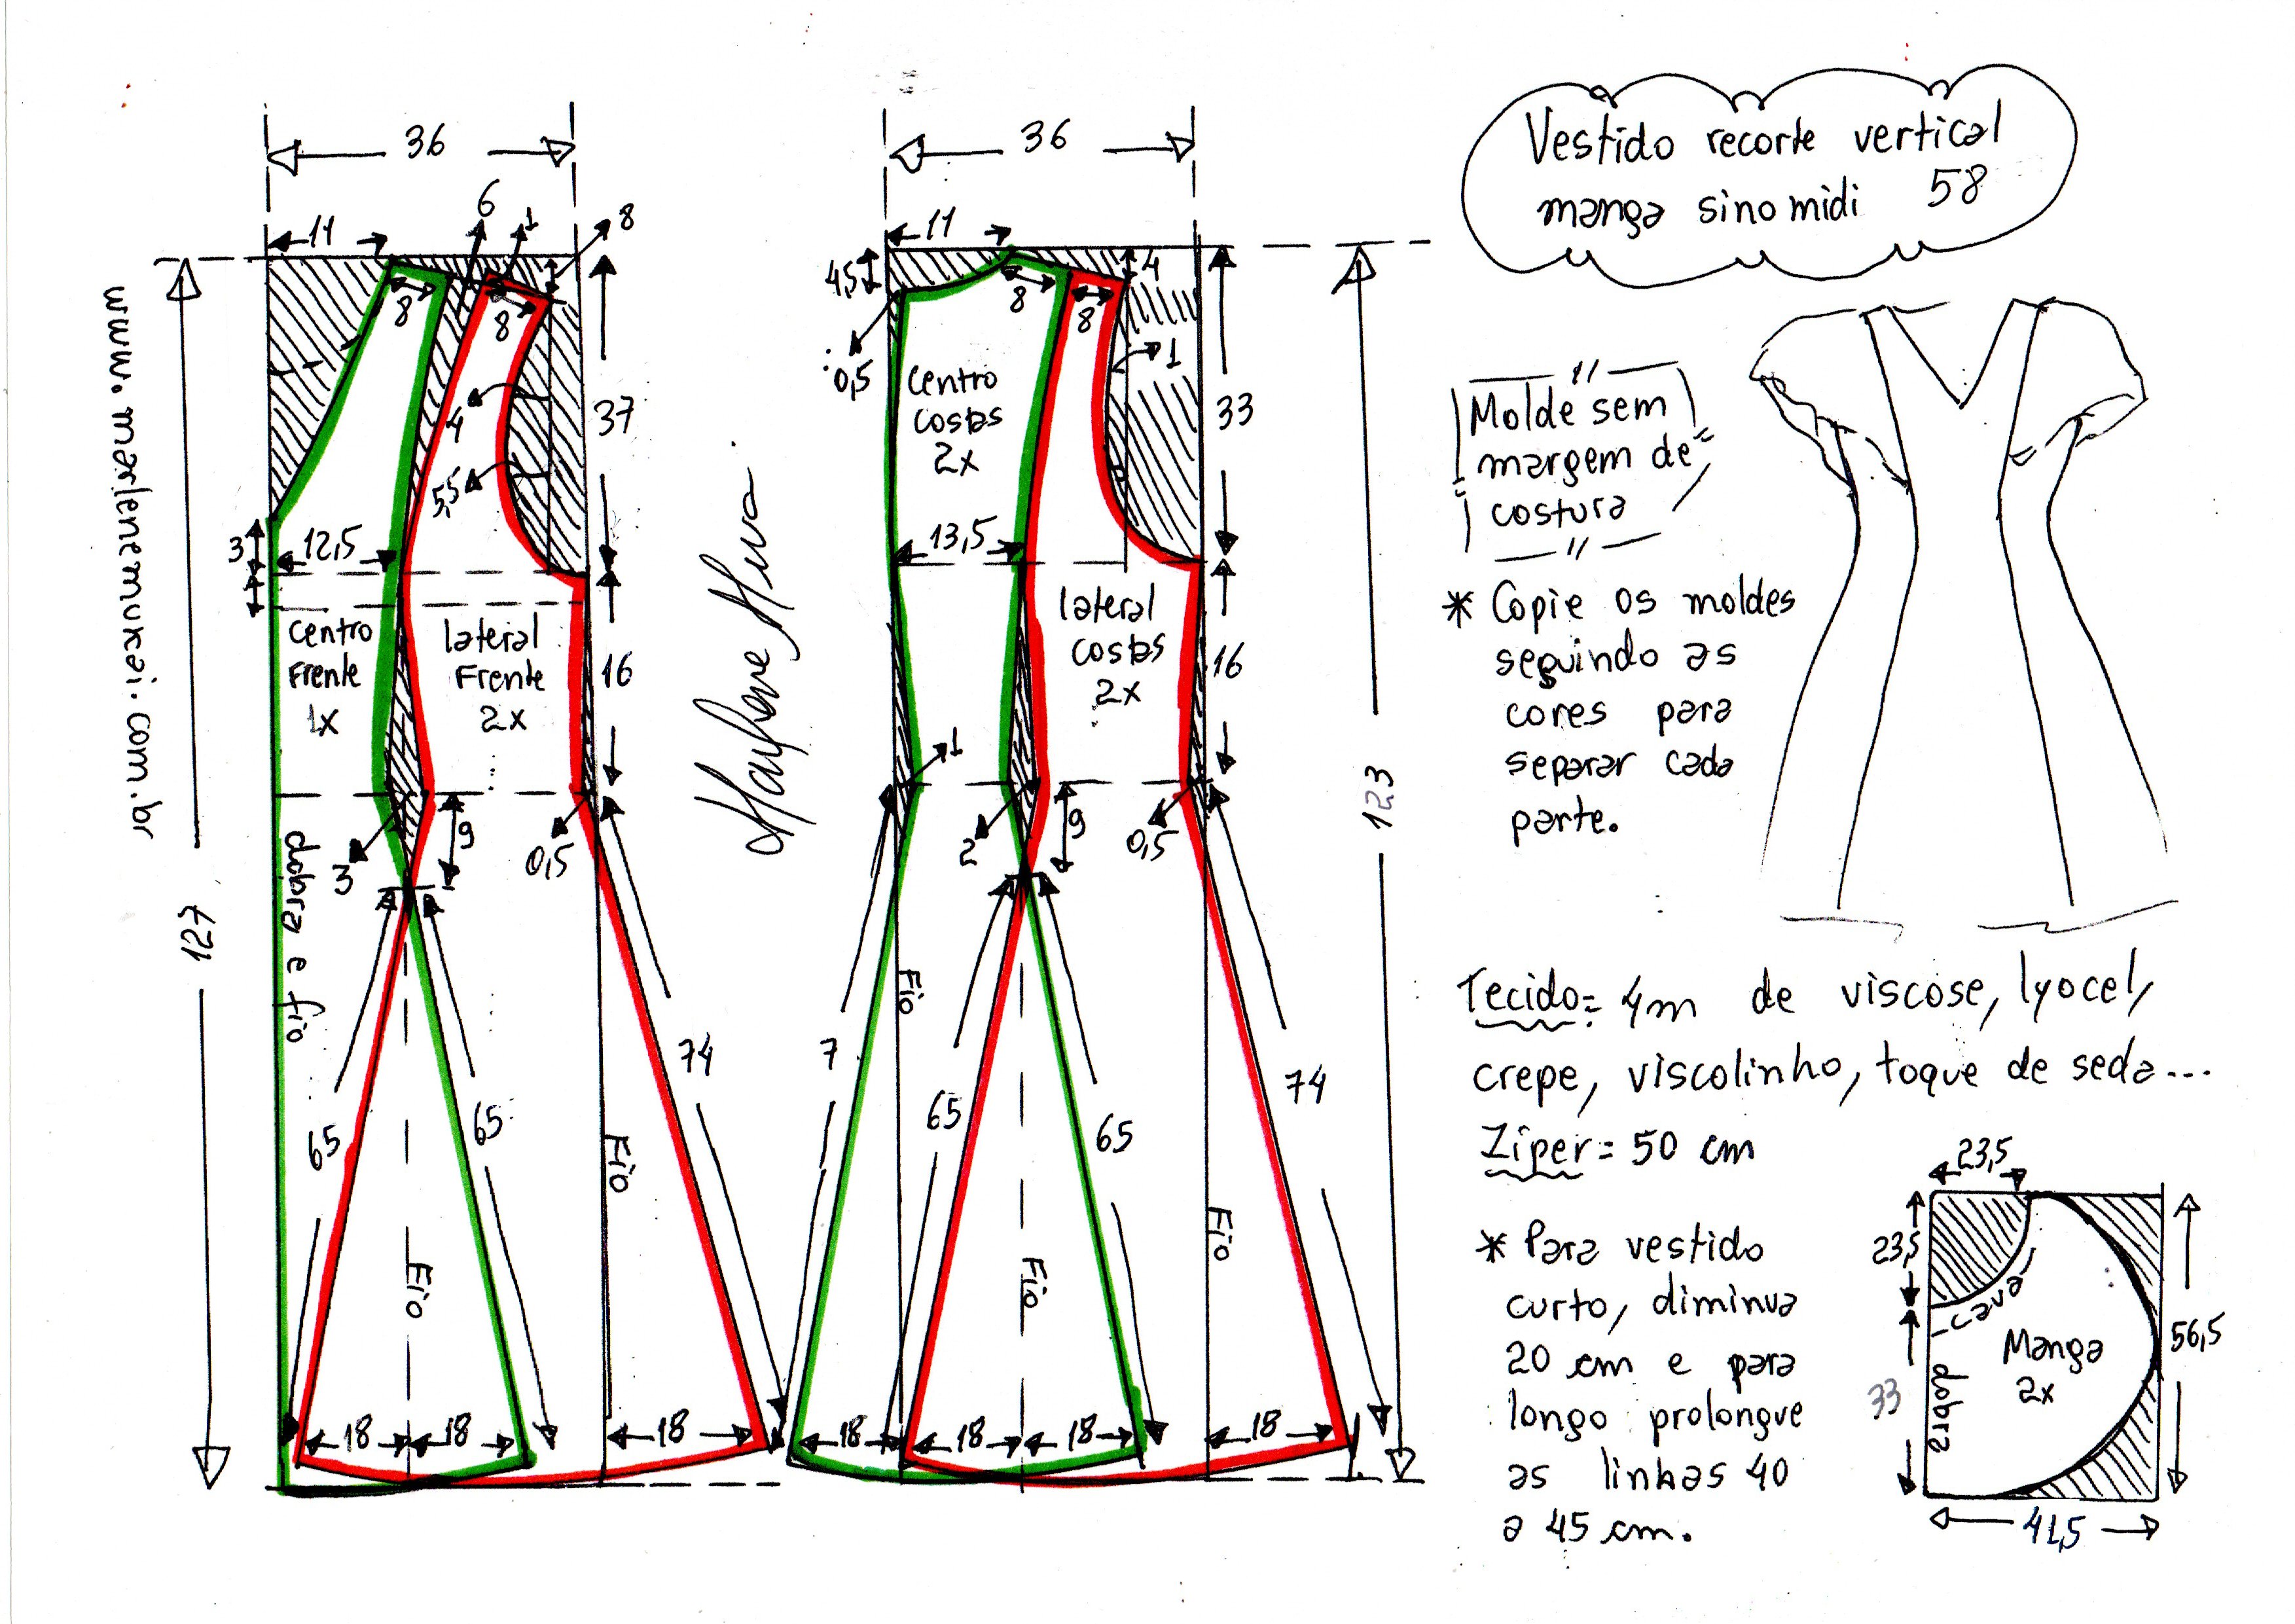 Vestido recorte vertical
manga sino midi 58
36
11
6
1
8
8
8
37
4
5,5
3
12,5
centro
Frente
1x
lateral
Frente
2x
16
9
3
0,5
dobra e fio
127
65
65
74
Fio
Fio
18
18
18
www.marlenemukai.com.br
36
11
4,5
4
8
8
0,5
1
centro
costas
2x
33
13,5
lateral
costas
2x
16
1
2
9
0,5
123
Fio
7
65
65
74
Fio
Fio
18
18
18
18
Molde sem
margem de
costura
* Copie os moldes
seguindo as
cores para
separar cada
parte.
Tecido= 4m de viscose, lyocel,
crepe, viscolinho, toque de seda...
Ziper= 50 cm
* Para vestido
curto, diminua
20 cm e para
longo prolongue
as linhas 40
a 45 cm.
23,5
23,5
cava
Manga
2x
56,5
33
dobra
41,5